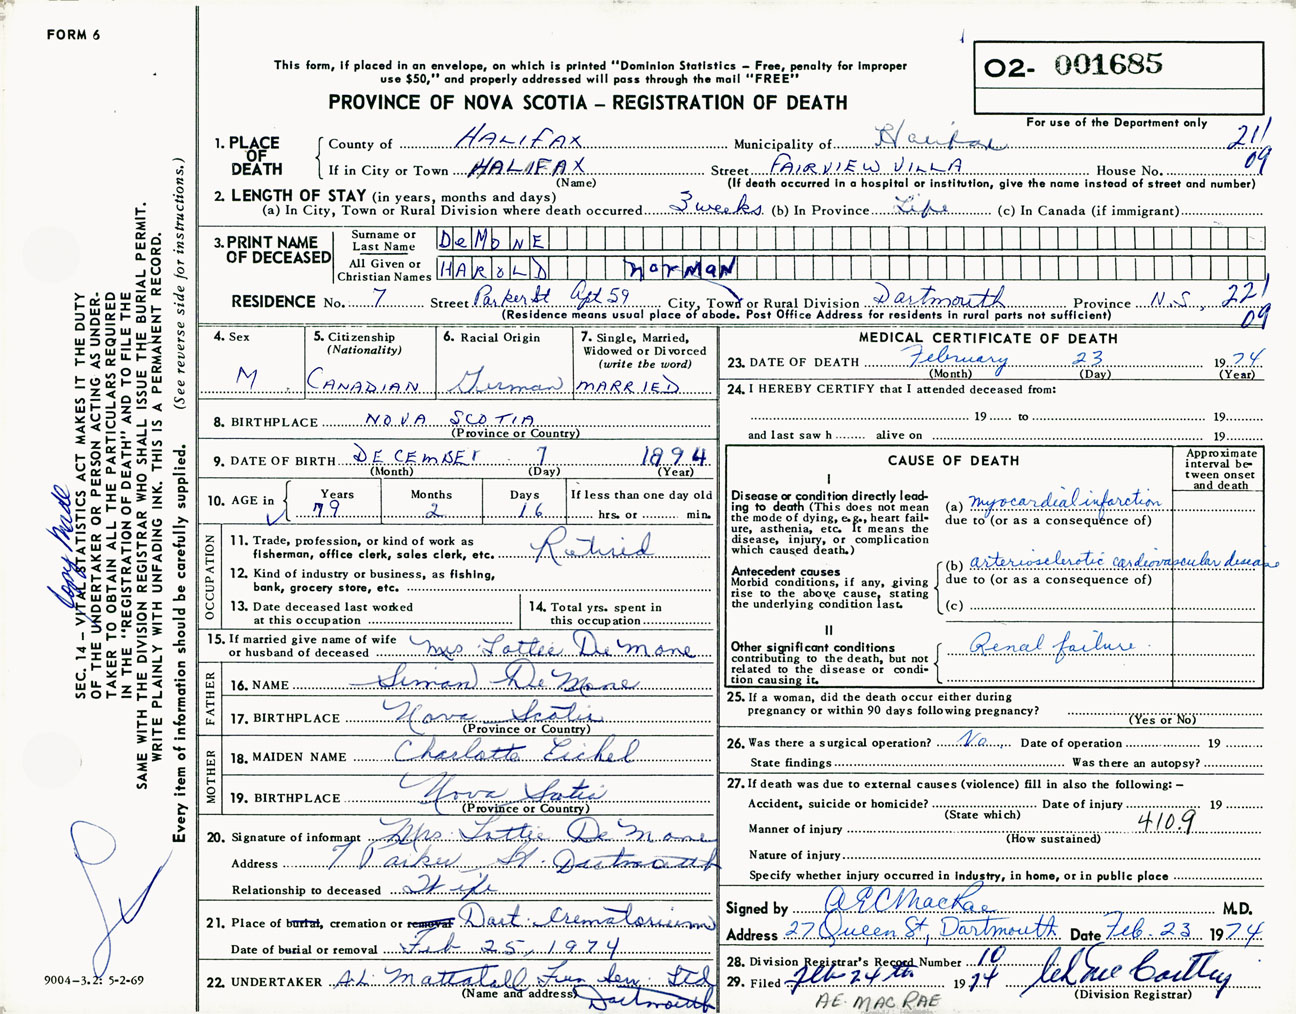 FORM 6
This form, if placed in an envelope, on which is printed "Dominion Statistics – Free, penalty for improper
use $50," and properly addressed will pass through the mail "FREE"
PROVINCE OF NOVA SCOTIA – REGISTRATION OF DEATH
O2- 001685
For use of the Department only
1. PLACE OF DEATH
County of HALIFAX Municipality of Halifax 21/09
If in City or Town HALIFAX Street FAIRVIEW VILLA House No.
(Name) (If death occurred in a hospital or institution, give the name instead of street and number)
2. LENGTH OF STAY (in years, months and days)
(a) In City, Town or Rural Division where death occurred 3 weeks (b) In Province Life (c) In Canada (if immigrant)
3. PRINT NAME OF DECEASED
Surname or Last Name DeMONE
All Given or Christian Names HAROLD NORMAN
RESIDENCE No. 7 Street Parker St Apt 59 City, Town or Rural Division Dartmouth Province N.S. 22/09
(Residence means usual place of abode. Post Office Address for residents in rural parts not sufficient)
4. Sex
M
5. Citizenship
(Nationality)
CANADIAN
6. Racial Origin
German
7. Single, Married,
Widowed or Divorced
(write the word)
MARRIED
8. BIRTHPLACE NOVA SCOTIA
(Province or Country)
9. DATE OF BIRTH DECEMBER 7 1894
(Month) (Day) (Year)
10. AGE in
Years Months Days If less than one day old
79 2 16 hrs. or min.
OCCUPATION
11. Trade, profession, or kind of work as
fisherman, office clerk, sales clerk, etc. Retired
12. Kind of industry or business, as fishing,
bank, grocery store, etc.
13. Date deceased last worked
at this occupation
14. Total yrs. spent in
this occupation
15. If married give name of wife
or husband of deceased Mrs. Lottie DeMone
FATHER
16. NAME Simon DeMone
17. BIRTHPLACE Nova Scotia
(Province or Country)
MOTHER
18. MAIDEN NAME Charlotte Eichel
19. BIRTHPLACE Nova Scotia
(Province or Country)
20. Signature of informant Mrs. Lottie DeMone
Address 7 Parker St. Dartmouth
Relationship to deceased Wife
21. Place of burial, cremation or removal Dart. Crematorium
Date of burial or removal Feb 25, 1974
22. UNDERTAKER A.L. Mattatall Fun Ser. Ltd
(Name and address) Dartmouth
MEDICAL CERTIFICATE OF DEATH
23. DATE OF DEATH February 23 1974
(Month) (Day) (Year)
24. I HEREBY CERTIFY that I attended deceased from:
19 to 19
and last saw h alive on 19
CAUSE OF DEATH
Approximate
interval be-
tween onset
and death
I
Disease or condition directly lead-
ing to death (This does not mean
the mode of dying, e.g., heart fail-
ure, asthenia, etc. It means the
disease, injury, or complication
which caused death.)
(a) myocardial infarction
due to (or as a consequence of)
Antecedent causes
Morbid conditions, if any, giving
rise to the above cause, stating
the underlying condition last.
(b) arteriosclerotic cardiovascular disease
due to (or as a consequence of)
(c)
II
Other significant conditions
contributing to the death, but not
related to the disease or condi-
tion causing it.
Renal failure.
25. If a woman, did the death occur either during
pregnancy or within 90 days following pregnancy?
(Yes or No)
26. Was there a surgical operation? No Date of operation 19
State findings Was there an autopsy?
27. If death was due to external causes (violence) fill in also the following: –
Accident, suicide or homicide? Date of injury 19
(State which)
Manner of injury 410.9
(How sustained)
Nature of injury
Specify whether injury occurred in industry, in home, or in public place
Signed by A E C MacRae M.D.
Address 27 Queen St, Dartmouth Date Feb. 23 1974
28. Division Registrar's Record Number 10
29. Filed Feb 24th 1974
(Division Registrar)
A.E. MAC RAE
SEC. 14 – VITAL STATISTICS ACT MAKES IT THE DUTY
OF THE UNDERTAKER OR PERSON ACTING AS UNDER-
TAKER TO OBTAIN ALL THE PARTICULARS REQUIRED
IN THE "REGISTRATION OF DEATH" AND TO FILE THE
SAME WITH THE DIVISION REGISTRAR WHO SHALL ISSUE THE BURIAL PERMIT.
WRITE PLAINLY WITH UNFADING INK. THIS IS A PERMANENT RECORD.
Every item of information should be carefully supplied. (See reverse side for instructions.)
Copy Made
9004–3.2: 5-2-69